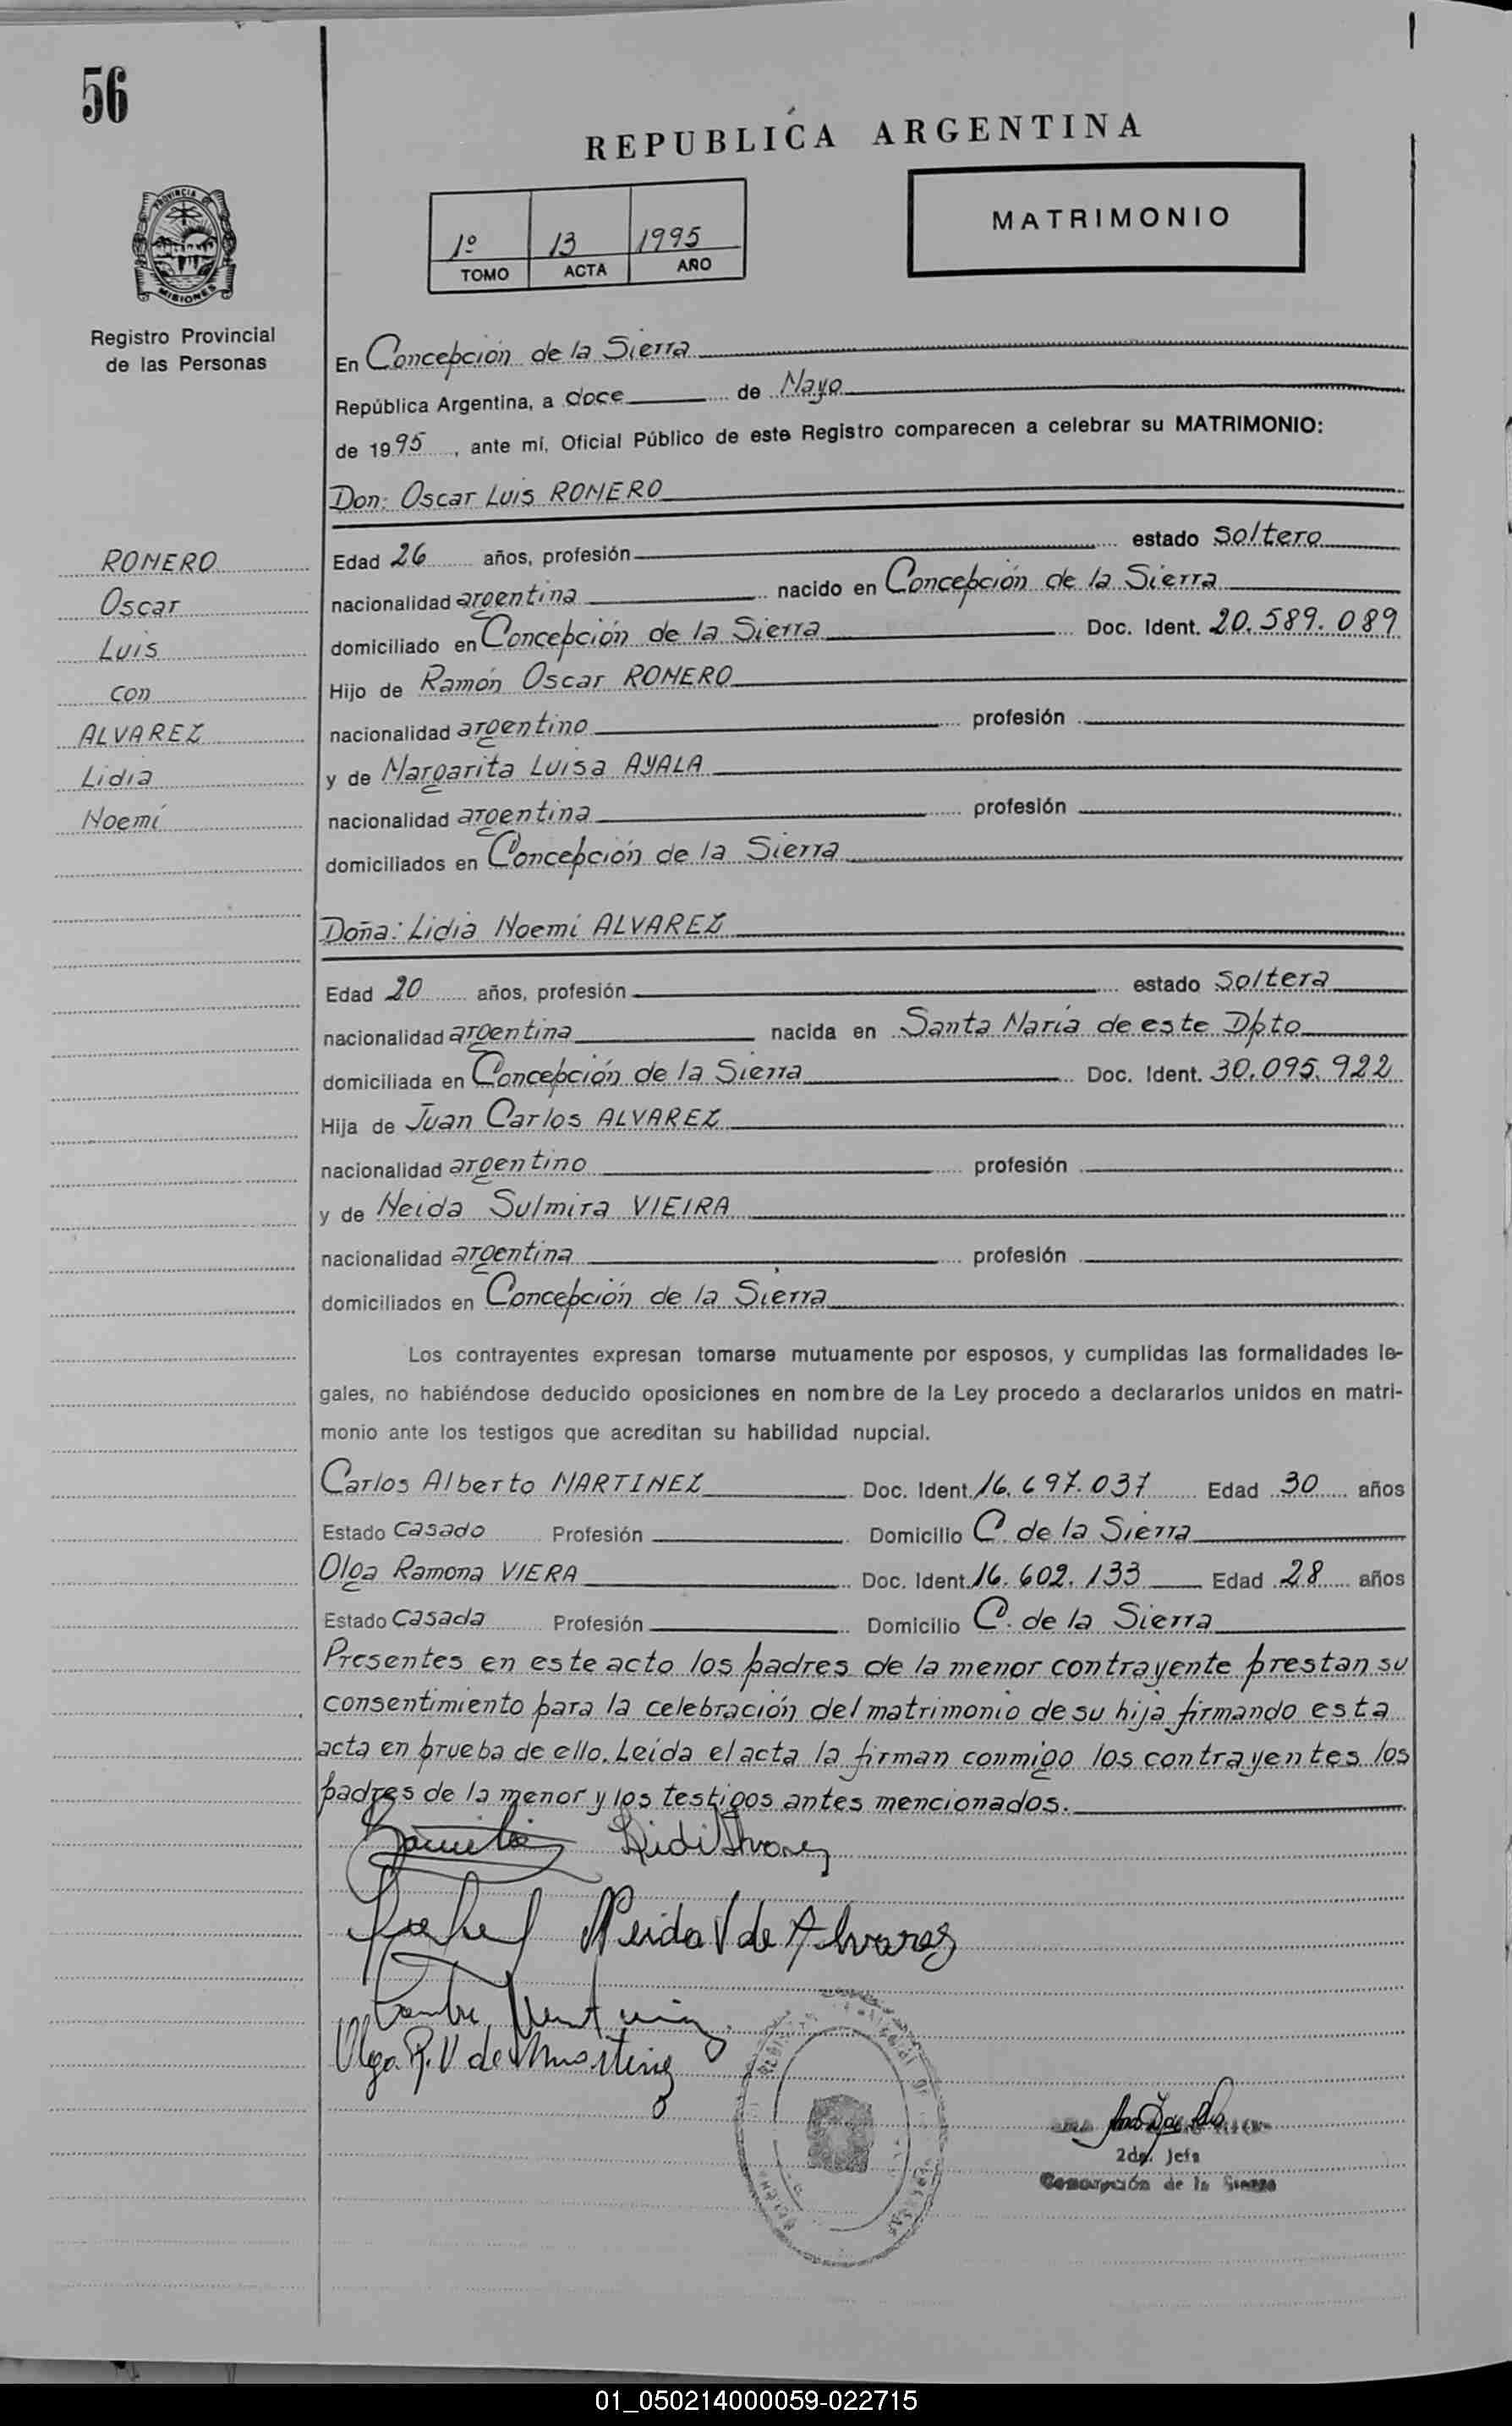 56
REPUBLICA ARGENTINA
PROVINCIA DE
MISIONES
Registro Provincial
de las Personas
1º 13 1995
TOMO ACTA AÑO
MATRIMONIO
En Concepción de la Sierra
República Argentina, a doce de Mayo
de 1995, ante mí, Oficial Público de este Registro comparecen a celebrar su MATRIMONIO:
Don: Oscar Luis ROMERO
ROMERO
Oscar
Luis
con
ALVAREZ
Lidia
Noemí
Edad 26 años, profesión estado Soltero
nacionalidad argentina nacido en Concepción de la Sierra
domiciliado en Concepción de la Sierra Doc. Ident. 20.589.089
Hijo de Ramón Oscar ROMERO
nacionalidad argentino profesión
y de Margarita Luisa AYALA
nacionalidad argentina profesión
domiciliados en Concepción de la Sierra
Doña: Lidia Noemí ALVAREZ
Edad 20 años, profesión estado Soltera
nacionalidad argentina nacida en Santa María de este Dpto
domiciliada en Concepción de la Sierra Doc. Ident. 30.095.922
Hija de Juan Carlos ALVAREZ
nacionalidad argentino profesión
y de Neida Sulmira VIEIRA
nacionalidad argentina profesión
domiciliados en Concepción de la Sierra
Los contrayentes expresan tomarse mutuamente por esposos, y cumplidas las formalidades le-
gales, no habiéndose deducido oposiciones en nombre de la Ley procedo a declararlos unidos en matri-
monio ante los testigos que acreditan su habilidad nupcial.
Carlos Alberto MARTINEZ Doc. Ident. 16.697.037 Edad 30 años
Estado Casado Profesión Domicilio C. de la Sierra
Olga Ramona VIERA Doc. Ident. 16.602.133 Edad 28 años
Estado Casada Profesión Domicilio C. de la Sierra
Presentes en este acto los padres de la menor contrayente prestan su
consentimiento para la celebración del matrimonio de su hija firmando esta
acta en prueba de ello. Leída el acta la firman conmigo los contrayentes los
padres de la menor y los testigos antes mencionados.
Neida V de Alvarez
Olga R. V de Martinez
2da. Jefa
Concepción de la Sierra
01_050214000059-022715